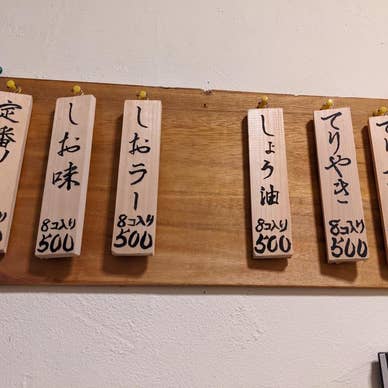 定番!
しお味
8コ入り
500
しおラー
8コ入り
500
しょう油
8コ入り
500
てりやき
8コ入り
500